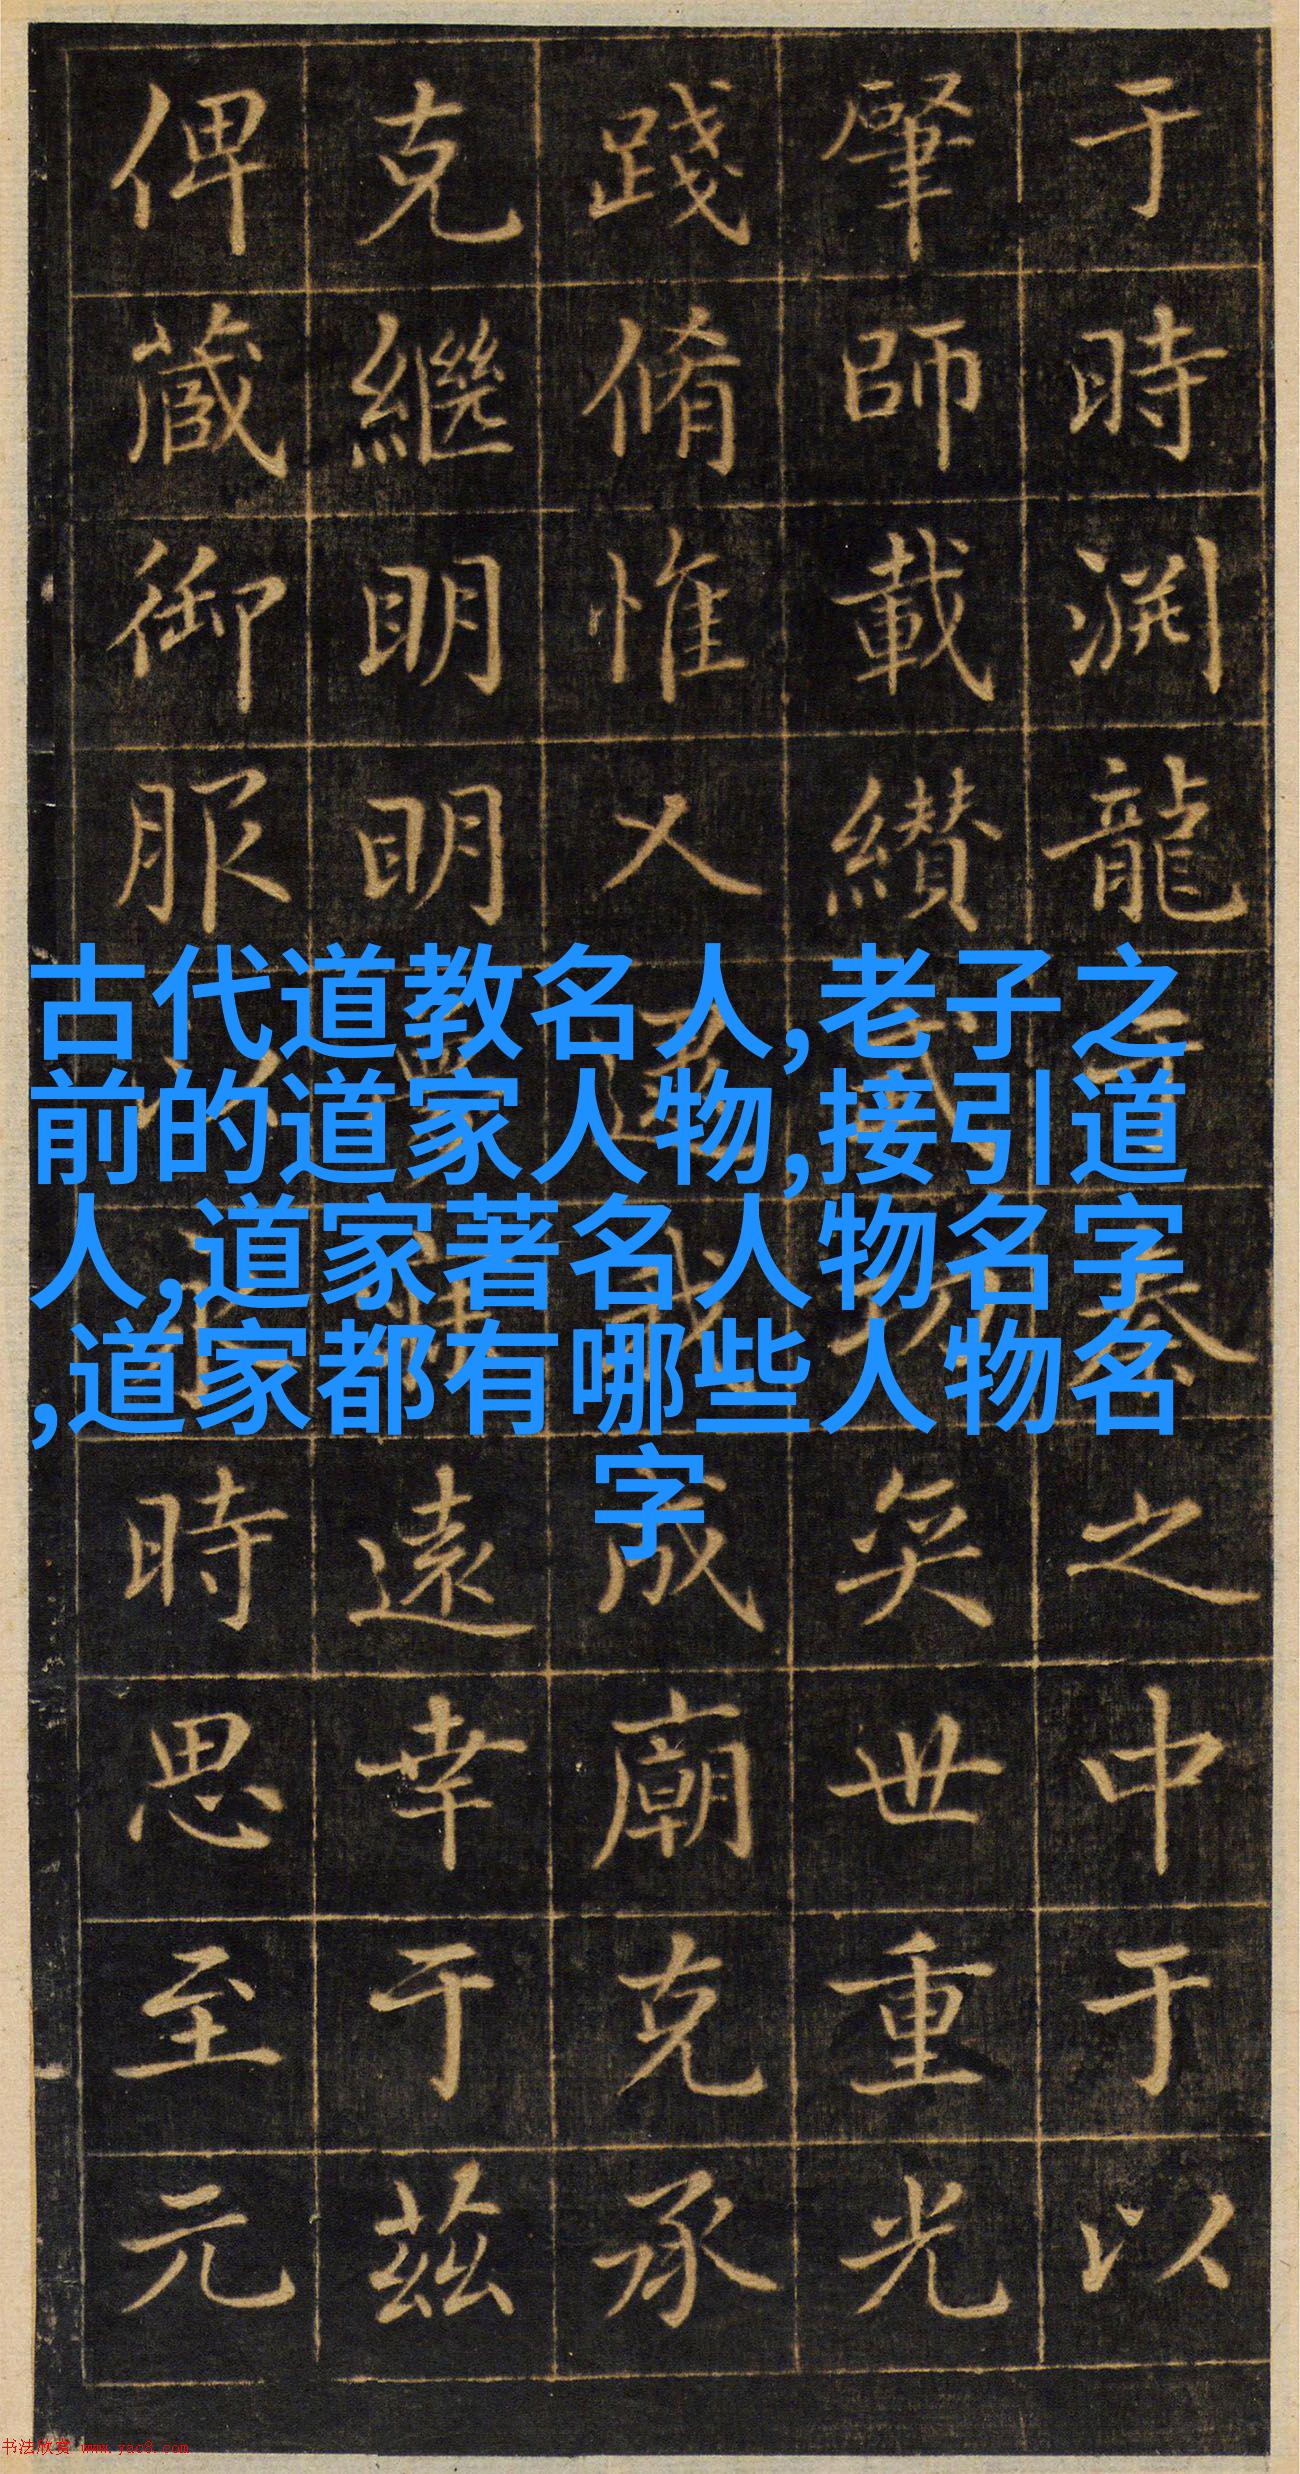 于時渊龍
之中于以
肇師載纘
奕世重光
踐脩惟乂
成廟克承
克繼明明
遠幸于茲
俾蔵御服
時思至元
古代道教名人,老子之
前的道家人物,接引道
人,道家著名人物名字
,道家都有哪些人物名
字
书法欣赏 www.yac8.com